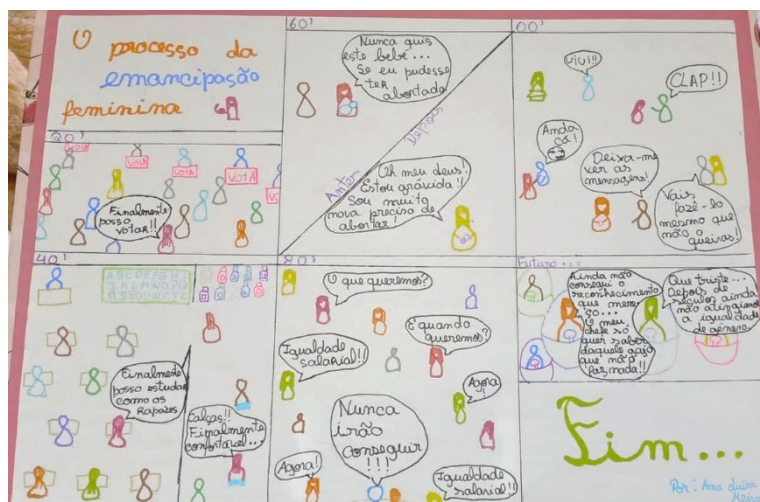 O processo da
emancipação
feminina
20'
VOTA
VOTA
VOTA
VOTA
Finalmente
posso
votar!!
60'
Nunca quis
este bebé...
Se eu pudesse
ter
abortado
Antes
Depois
Oh meu deus!
Estou grávida!!
Sou muito
nova preciso de
abortar!
00'
Vivi!!
CLAP!!
Anda
cá!
Deixa-me
ver as
mensagens!
Vais
fazê-lo
mesmo que
não o
queiras!
40'
ABCDEFGHI
JKLMNOPQ
RSTUVWXYZ
Finalmente
posso estudar
como os
Rapazes
Calças!!
Finalmente
confortável...
80'
O que queremos?
E quando
queremos?
Igualdade
salarial!!
Agora
!
Nunca
irão
conseguir
!!!
Agora!
Igualdade
salarial!!
Futuro...
Ainda não
consegui o
reconhecimento
que mere-
ço...
O meu
chefe só
quer saber
daquele gajo
que não
faz nada!!
Que triste...
Depois de
séculos ainda
não atingimos
a igualdade
de género
Fim...
Por: Ana Luísa